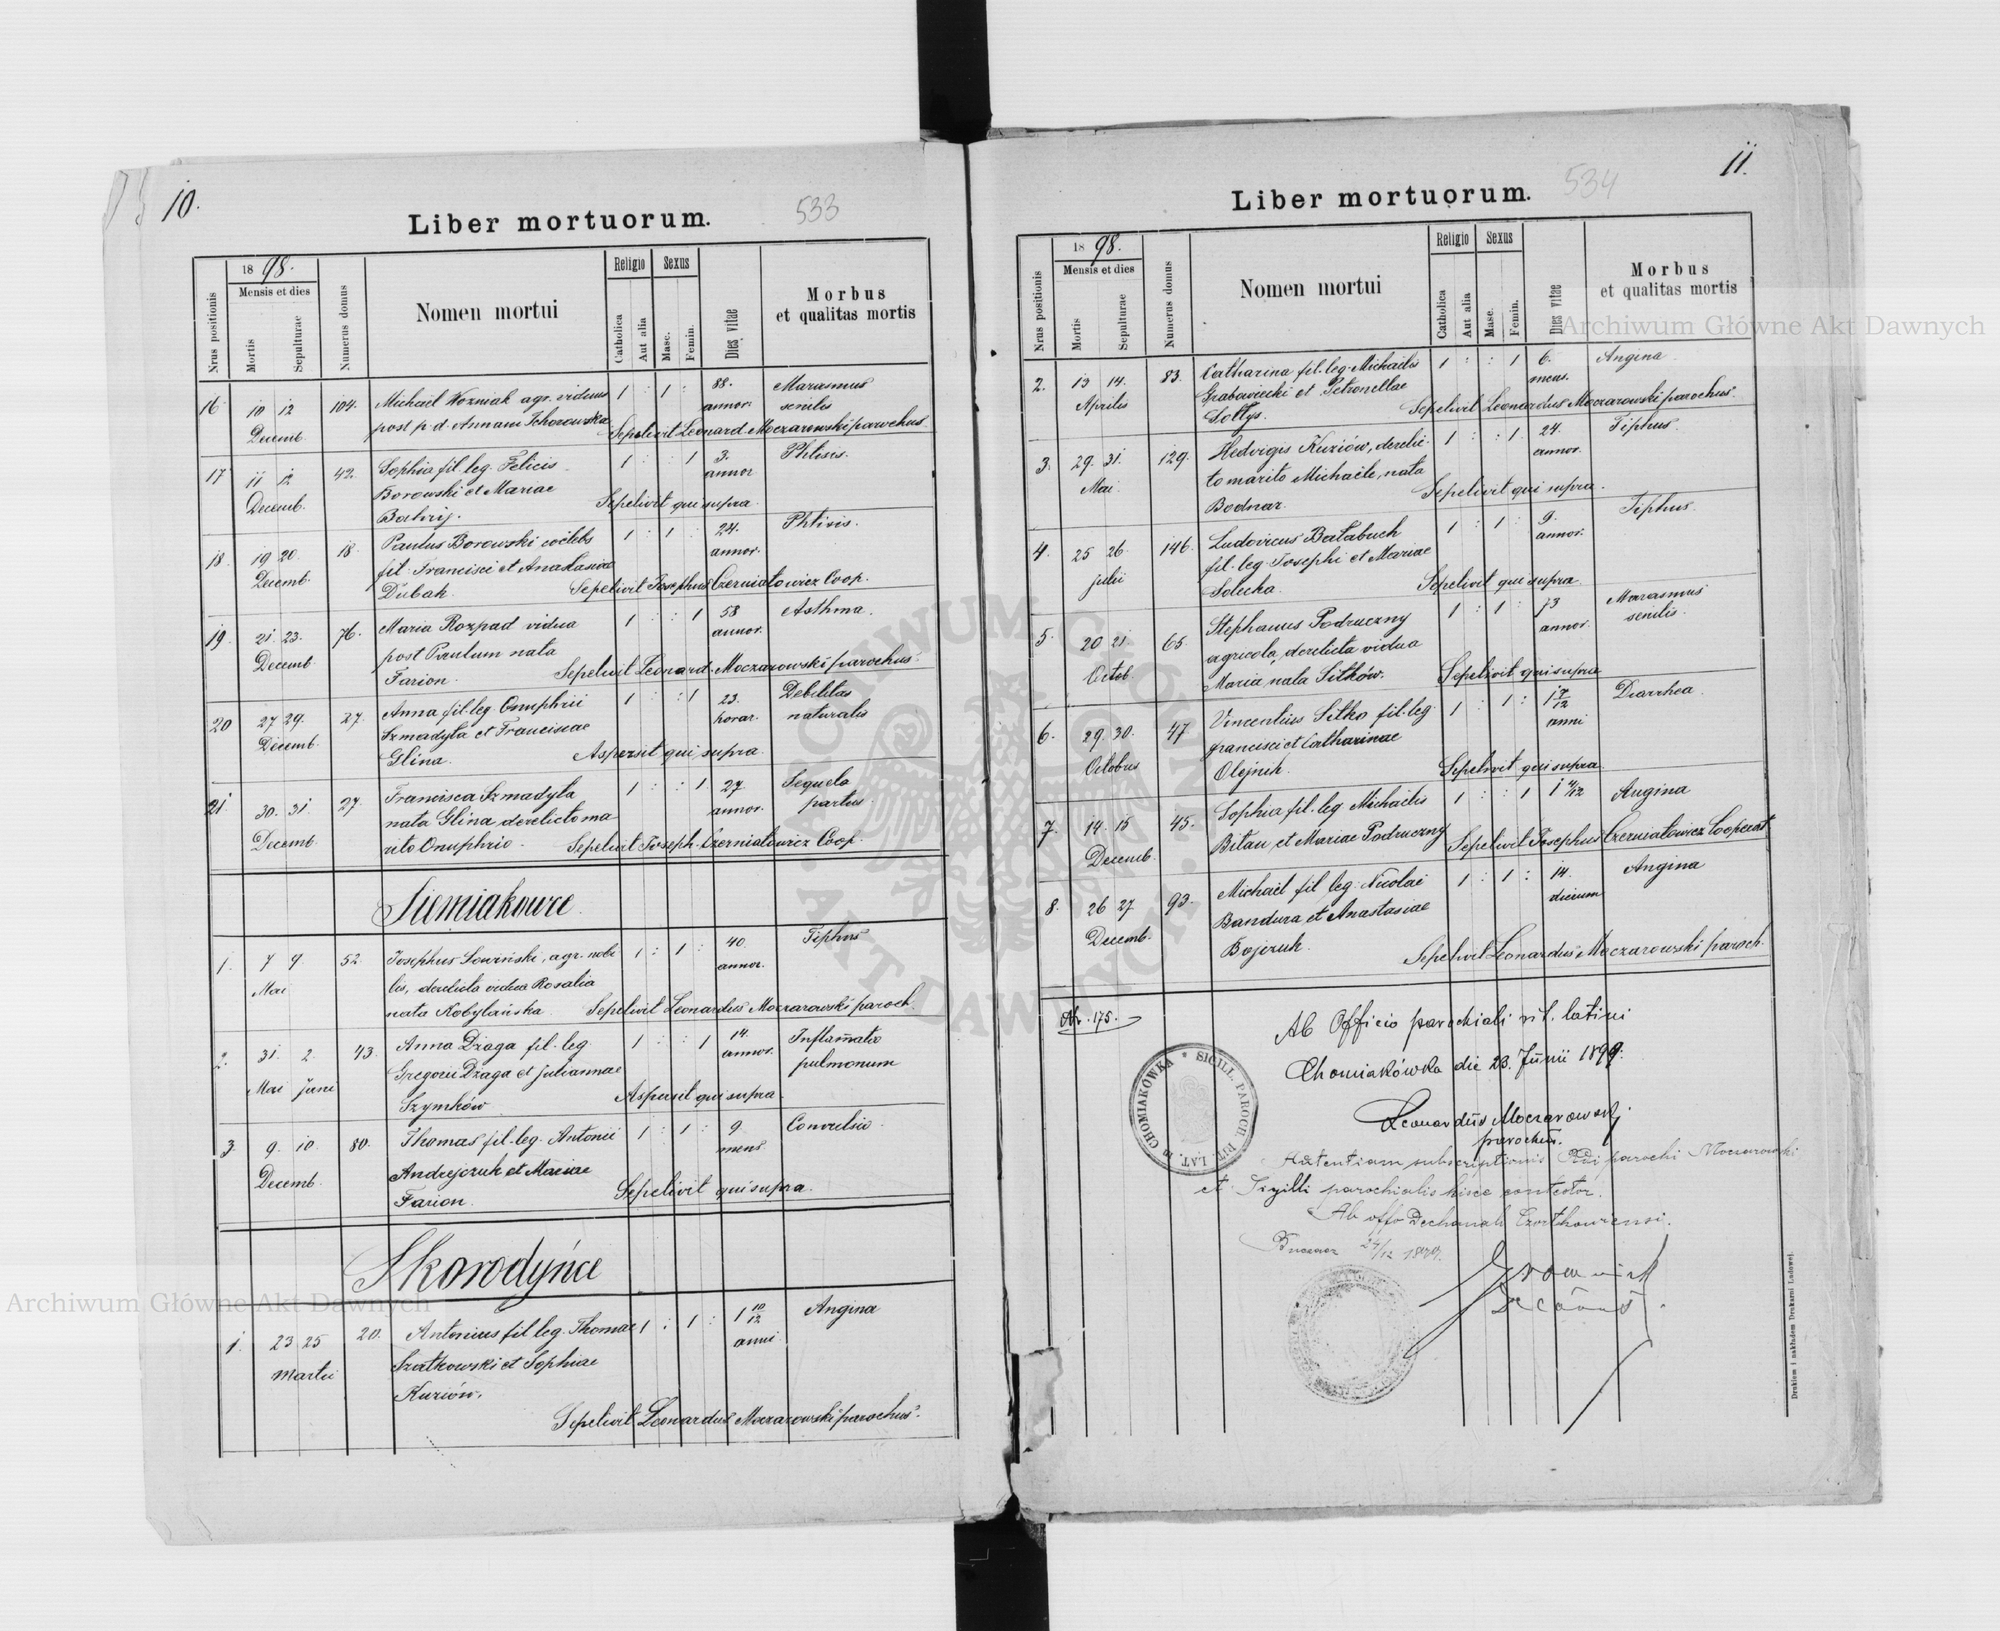 10.
533
Liber mortuorum.
Nrus positionis
18 98.
Mensis et dies
Mortis
Sepulturae
Numerus domus
Nomen mortui
Religio
Catholica
Aut alia
Sexus
Masc.
Femin.
Dies vitae
Morbus
et qualitas mortis
16 10 12 104. Michael Wozniak agr. viduus 1 : 1 : 88. Marasmus
Decemb. post p. d. Annam Tchorowska annor. senilis
Sepelivit Leonard. Moczarowski parochus
17 11 12 42. Sophia fil. leg. Felicis 1 : : 1 3. Phtisis.
Decemb. Borowski et Mariae annor
Sepelivit qui supra
18. 19 20. 18. Paulus Borowski coëlebs 1 : 1 : 24. Phtisis.
Decemb. fil. Francisci et Anastasiae annor.
Dubak. Sepelivit Josephus Czerniatowicz Coop.
19. 21. 23. 76. Maria Rozpad vidua 1 : : 1 58 Asthma.
Decemb. post Paulum nata annor.
Farion. Sepelivit Leonard. Moczarowski parochus.
20 27 29. 27. Anna fil. leg. Onuphrii 1 : : 1 23. Debilitas
Decemb. Szmadyla et Franciscae horar. naturalis
Glina. Aspersit qui supra
21. 30. 31. 27. Francisca Szmadyla 1 : : 1 27 Sequela
Decemb. nata Glina, derelicto ma annor. partus
rito Onuphrio. Sepelivit Joseph. Czerniatowicz Coop.
Siemiakowce
1. 7 9 52. Josephus Lowiński, agr. nobi 1 : 1 : 40. Tiphus
Mai lis, derelicta vidua Rosalia annor.
nata Kobylańska. Sepelivit Leonardus Moczarowski paroch.
2. 31. 2. 43. Anna Dżaga fil. leg. 1 : : 1 14. Inflam̄atio
Mai Juni Gregorii Dżaga et Juliannae annor. pulmonum
Szymków Aspersit qui supra
3. 9. 10. 80. Thomas fil. leg. Antonii 1 : 1 : 9 Convulsio.
Decemb. Andrejczuk et Mariae mens
Farion. Sepelivit qui supra.
Skorodyńce
1. 23 25 20. Antonius fil. leg. Thomae 1 : 1 : 1 10/12 Angina
Martii Szatkowski et Sophiae anni
Kuziów.
Sepelivit Leonardus Moczarowski parochus.
11.
534
Liber mortuorum.
Nrus positionis
18 98.
Mensis et dies
Mortis
Sepulturae
Numerus domus
Nomen mortui
Religio
Catholica
Aut alia
Sexus
Masc.
Femin.
Dies vitae
Morbus
et qualitas mortis
2. 13 14. 83. Catharina fil. leg. Michaelis 1 : : 1 6. Angina
Aprilis Grabowiecki et Petronellae mens.
Soltys. Sepelivit Leonardus Moczarowski parochus.
3. 29. 31. 129. Hedvigis Kuziów, derelic 1 : : 1 24. Tiphus.
Mai. to marito Michaële, nata annor.
Bodnar. Sepelivit qui supra.
4. 25 26 146. Ludovicus Batabuch 1 : 1 : 9. Tiphus.
Julii fil. leg. Josephi et Mariae annor.
Solecka. Sepelivit qui supra
5. 20 21. 65. Stephanus Podruczny 1 : 1 : 73 Marasmus
Octob. agricola, derelicta vidua annor. senilis.
Maria, nata Sitków. Sepelivit qui supra
6. 29. 30. 47 Vincentius Sitko fil. leg. 1 : 1 : 1 7/12 Diarrhea.
Octobris Francisci et Catharinae anni
Olejnik. Sepelivit qui supra
7. 14. 15 45. Sophia fil. leg. Michaelis 1 : : 1 1 4/12 Angina
Decemb. Bitau et Mariae Podruczny Sepelivit Josephus Czerniatowicz Cooperat
8. 26 27 93. Michaël fil. leg. Nicolai 1 : 1 : 14. Angina
Decemb. Bandura et Anastasiae dierum
Bojczuk. Sepelivit Leonardus Moczarowski paroch.
Nr. 175.
Ab Officio parochiali rit. latini
Chomiakówka die 23. Junii 1899.
Leonardus Moczarowski
parochus.
SIGILL. PAROCH. RIT. LAT. in CHOMIAKÓWKA
subscriptionis parochi Moczarowski
et Sigilli parochialis hisce contestor.
Ab offo Decanali Czortkoviensi.
24/12 1899.
Drukiem i nakładem Drukarni Ludowej.
Archiwum Główne Akt Dawnych
Archiwum Główne Akt Dawnych
ARCHIWUM GŁÓWNE AKT DAWNYCH